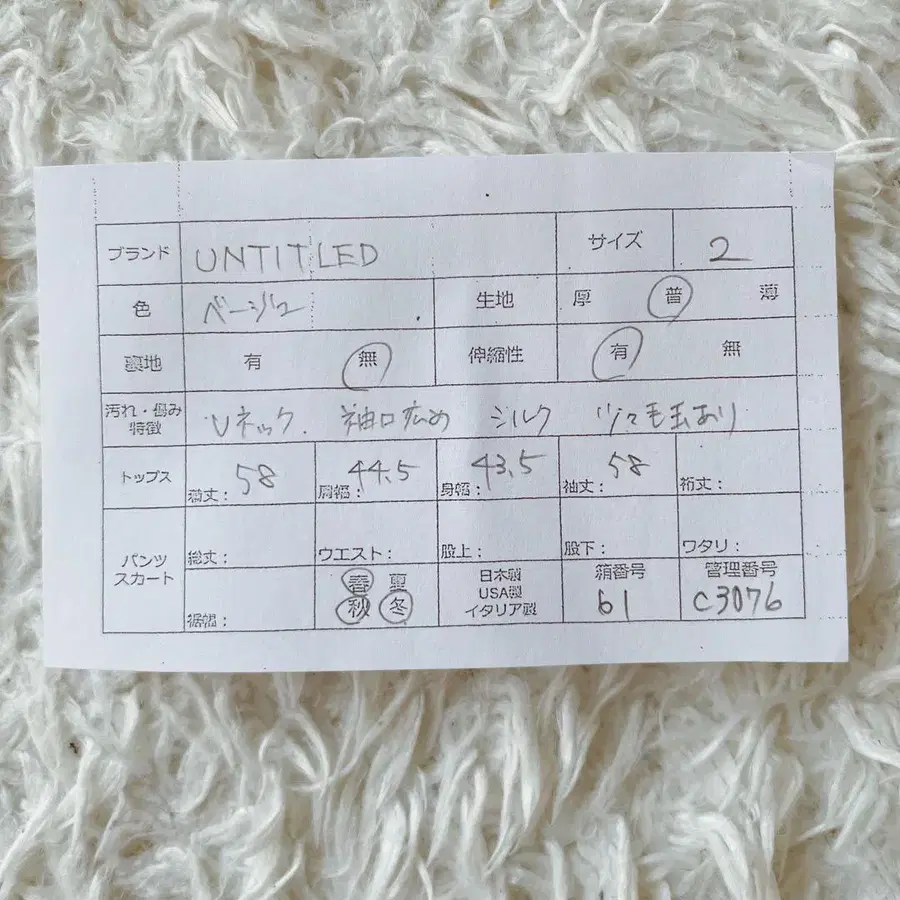 ブランド UNTITLED サイズ 2
色 ベージュ 生地 厚 普 薄
裏地 有 無 伸縮性 有 無
汚れ・傷み
特徴 Vネック. 袖口広め シルク 少々毛玉あり
トップス 着丈: 58 肩幅: 44.5 身幅: 43.5 袖丈: 58 裄丈:
パンツ
スカート
総丈: ウエスト: 股上: 股下: ワタリ:
裾幅:
春 夏
秋 冬
日本製
USA製
イタリア製
箱番号
61
管理番号
C3076